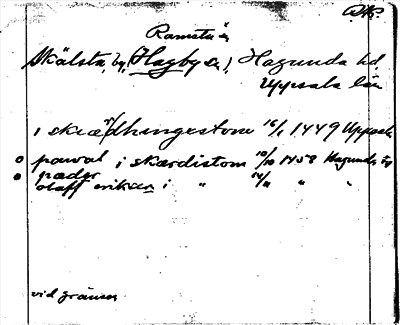 Ramsta sn
Skälsta, by, (Hagby sn), Hagunda hd,
Uppsala län
i skiædhingestom 16/1 1449 Uppsala
pawal i skærdistom 10/10 1458 Hagunda tg
pædir
olaff ericsson i " 14/11 " "
vid gränsen